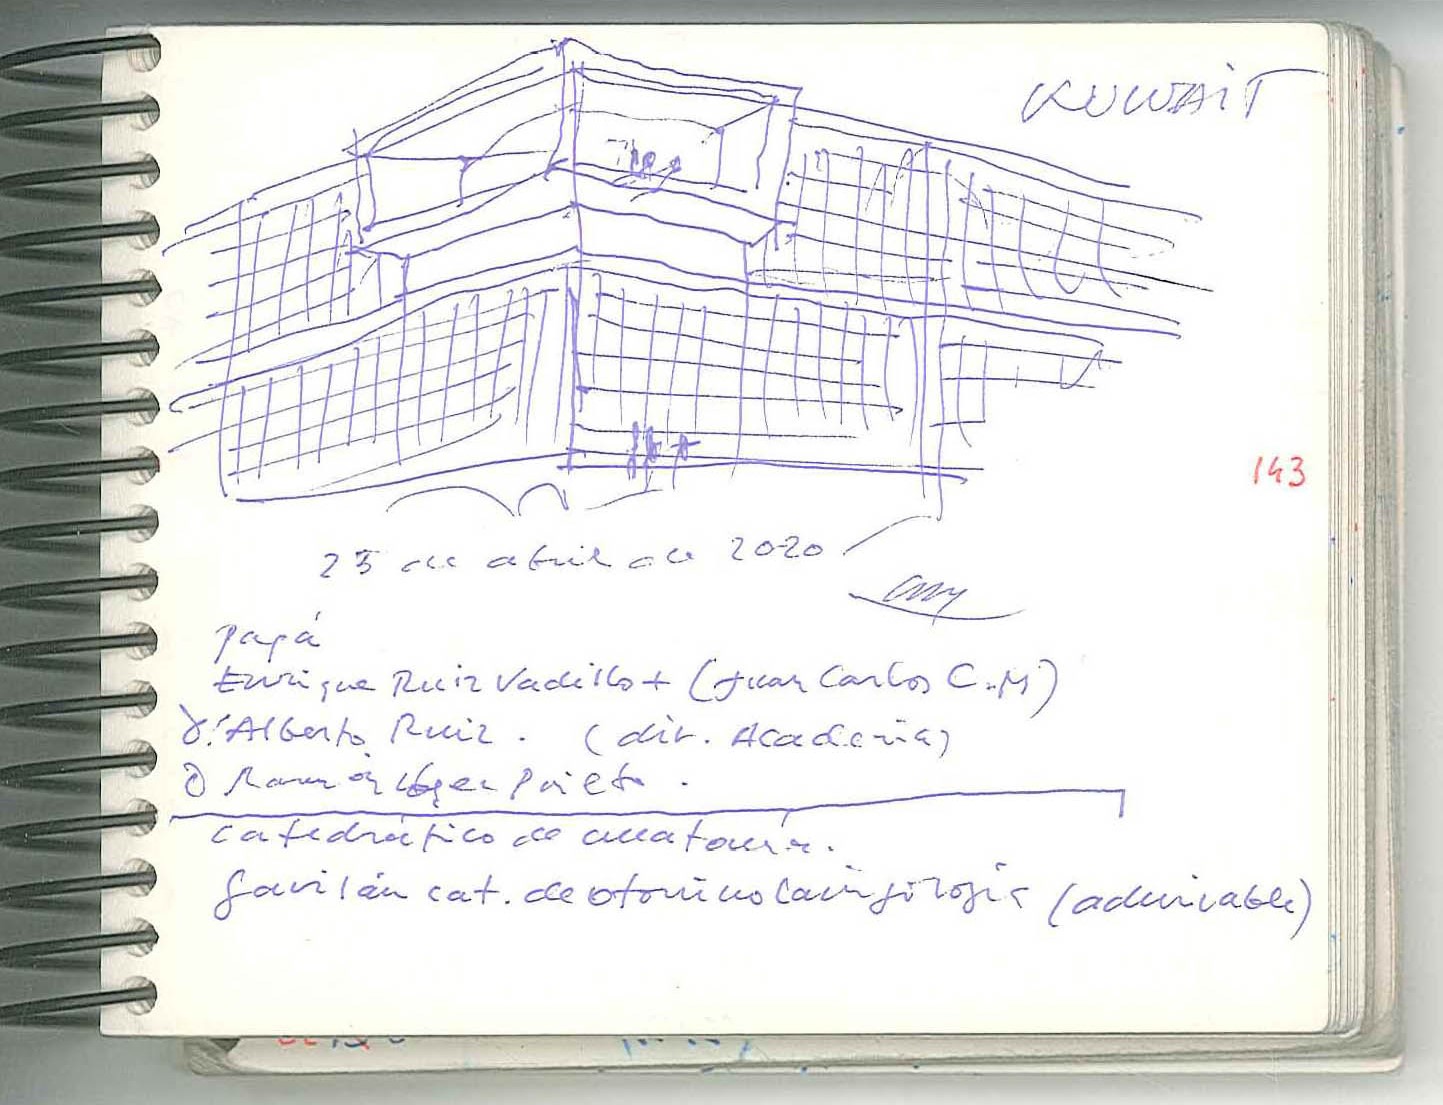 KUWAIT
143
25 de abril de 2020
papá
Enrique Ruiz Vadillo + (Juan Carlos C.M)
Alberto Ruiz. (dir. Academia)
Ramón López Prieto.
catedrático de anatomía.
Gavilán cat. de otorrinolaringología (admirable)